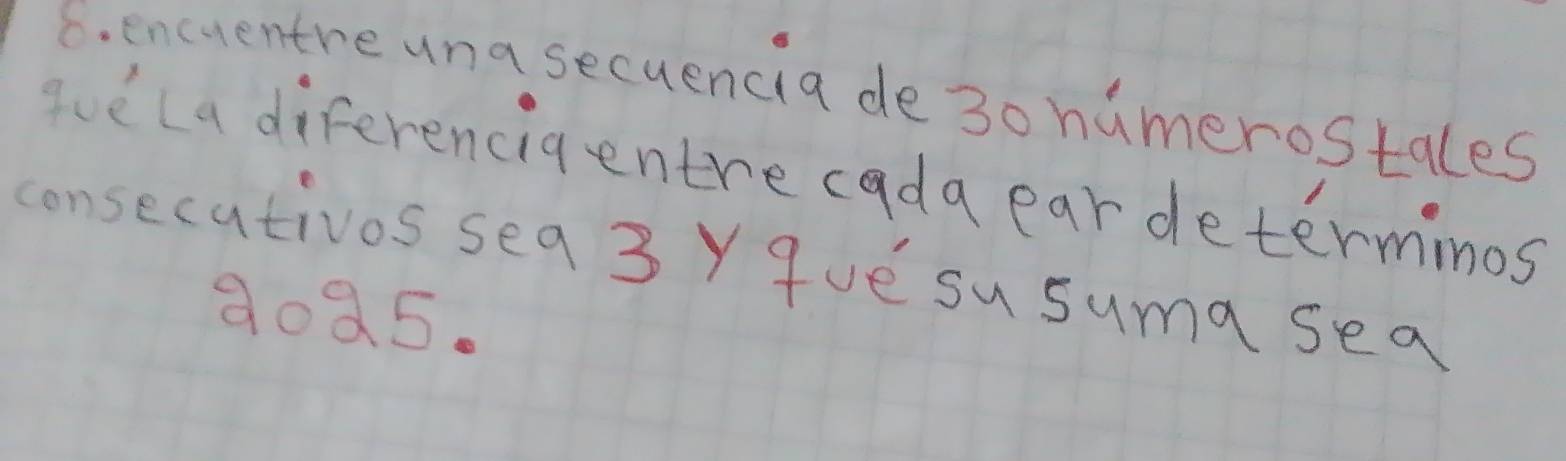 8. encuentre una secuencia de 30 números tales
qué La diferencia entre cada par de términos
consecutivos sea 3 y qué su suma sea
2025.